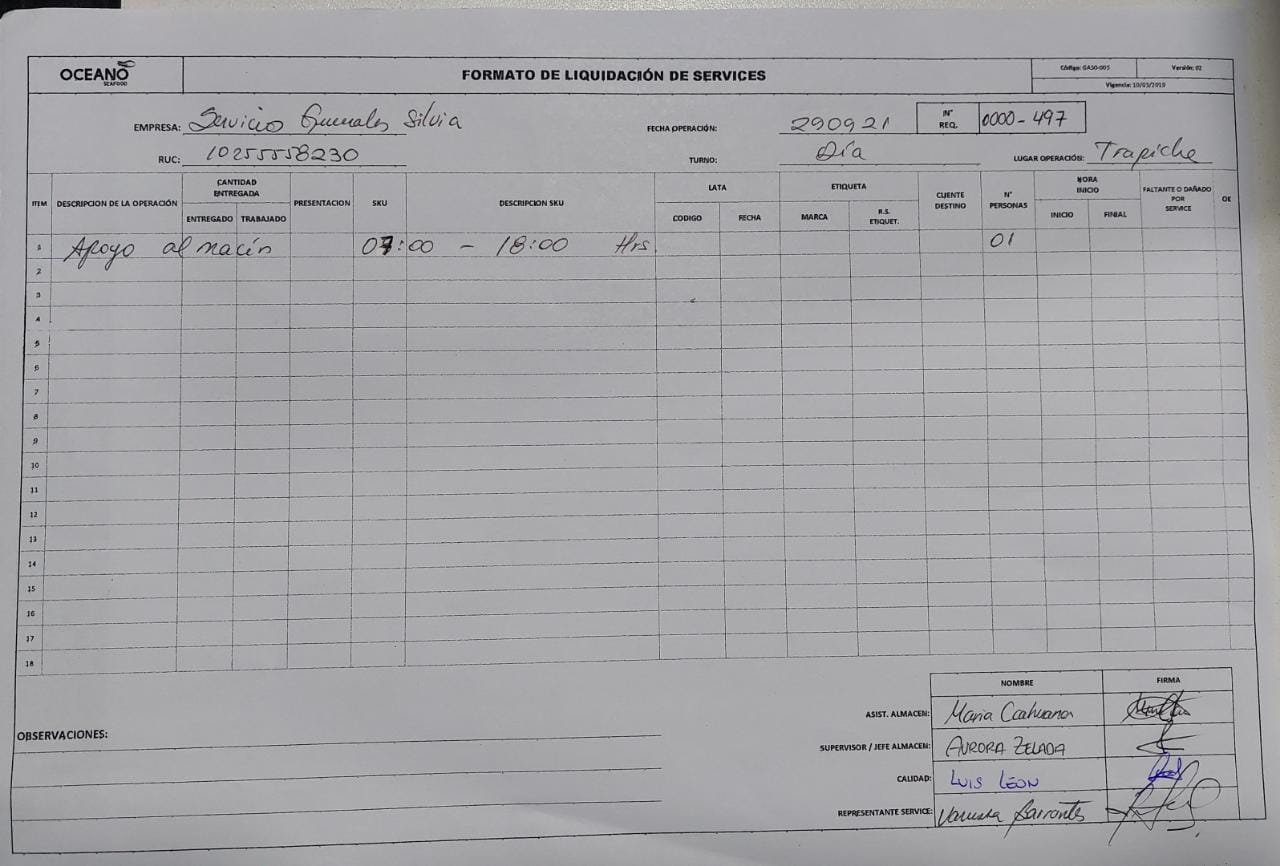 OCEANO SEAFOOD
FORMATO DE LIQUIDACIÓN DE SERVICES
Código: GASO-005 Versión: 02
Vigencia: 10/05/2019
EMPRESA: Servicio Generales Silvia
FECHA OPERACIÓN: 290921
N° REQ. 0000-497
RUC: 10255558230
TURNO: Día
LUGAR OPERACIÓN: Trapiche
ITEM DESCRIPCION DE LA OPERACIÓN CANTIDAD ENTREGADA ENTREGADO TRABAJADO PRESENTACION SKU DESCRIPCION SKU LATA CODIGO FECHA ETIQUETA MARCA R.S. ETIQUET. CLIENTE DESTINO N° PERSONAS HORA INICIO INICIO FINIAL FALTANTE O DAÑADO POR SERVICE OK
1 Apoyo almacén 07:00 - 18:00 Hrs. 01
2
3
4
5
6
7
8
9
10
11
12
13
14
15
16
17
18
NOMBRE FIRMA
ASIST. ALMACEN: Maria Cahuana
SUPERVISOR / JEFE ALMACEN: AURORA ZELADA
CALIDAD: LUIS LEON
REPRESENTANTE SERVICE: Vanessa Barrantes
OBSERVACIONES: